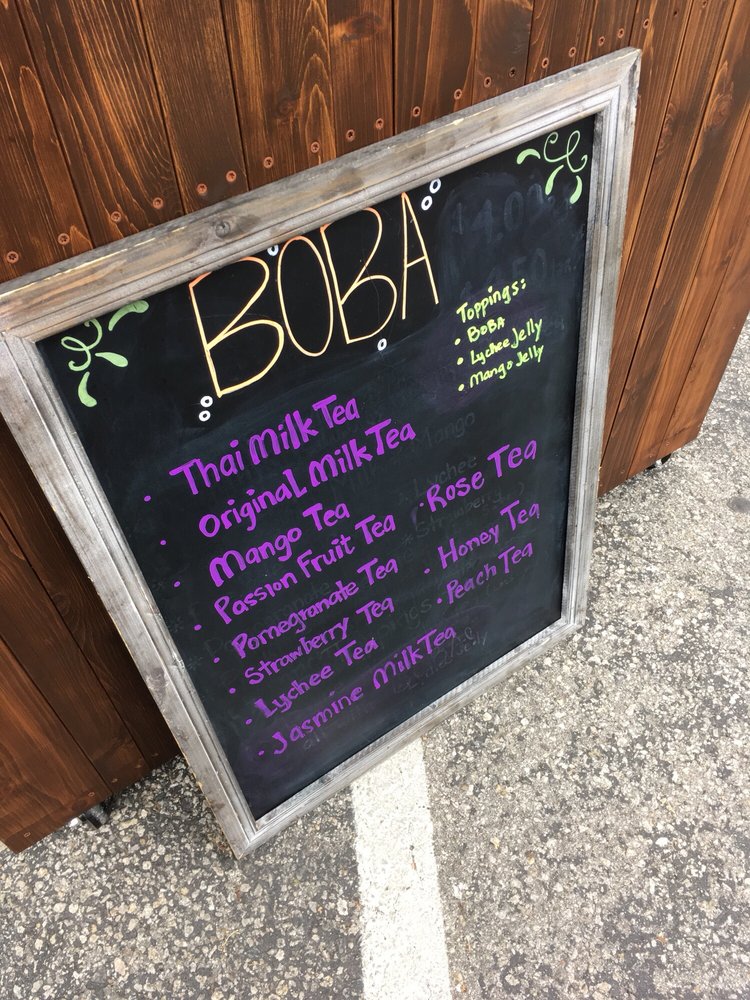 BOBA
Toppings:
• BOBA
• Lychee Jelly
• Mango Jelly
• Thai Milk Tea
• Original Milk Tea
• Mango Tea
• Passion Fruit Tea
• Pomegranate Tea
• Strawberry Tea
• Lychee Tea
• Jasmine Milk Tea
• Rose Tea
• Honey Tea
• Peach Tea